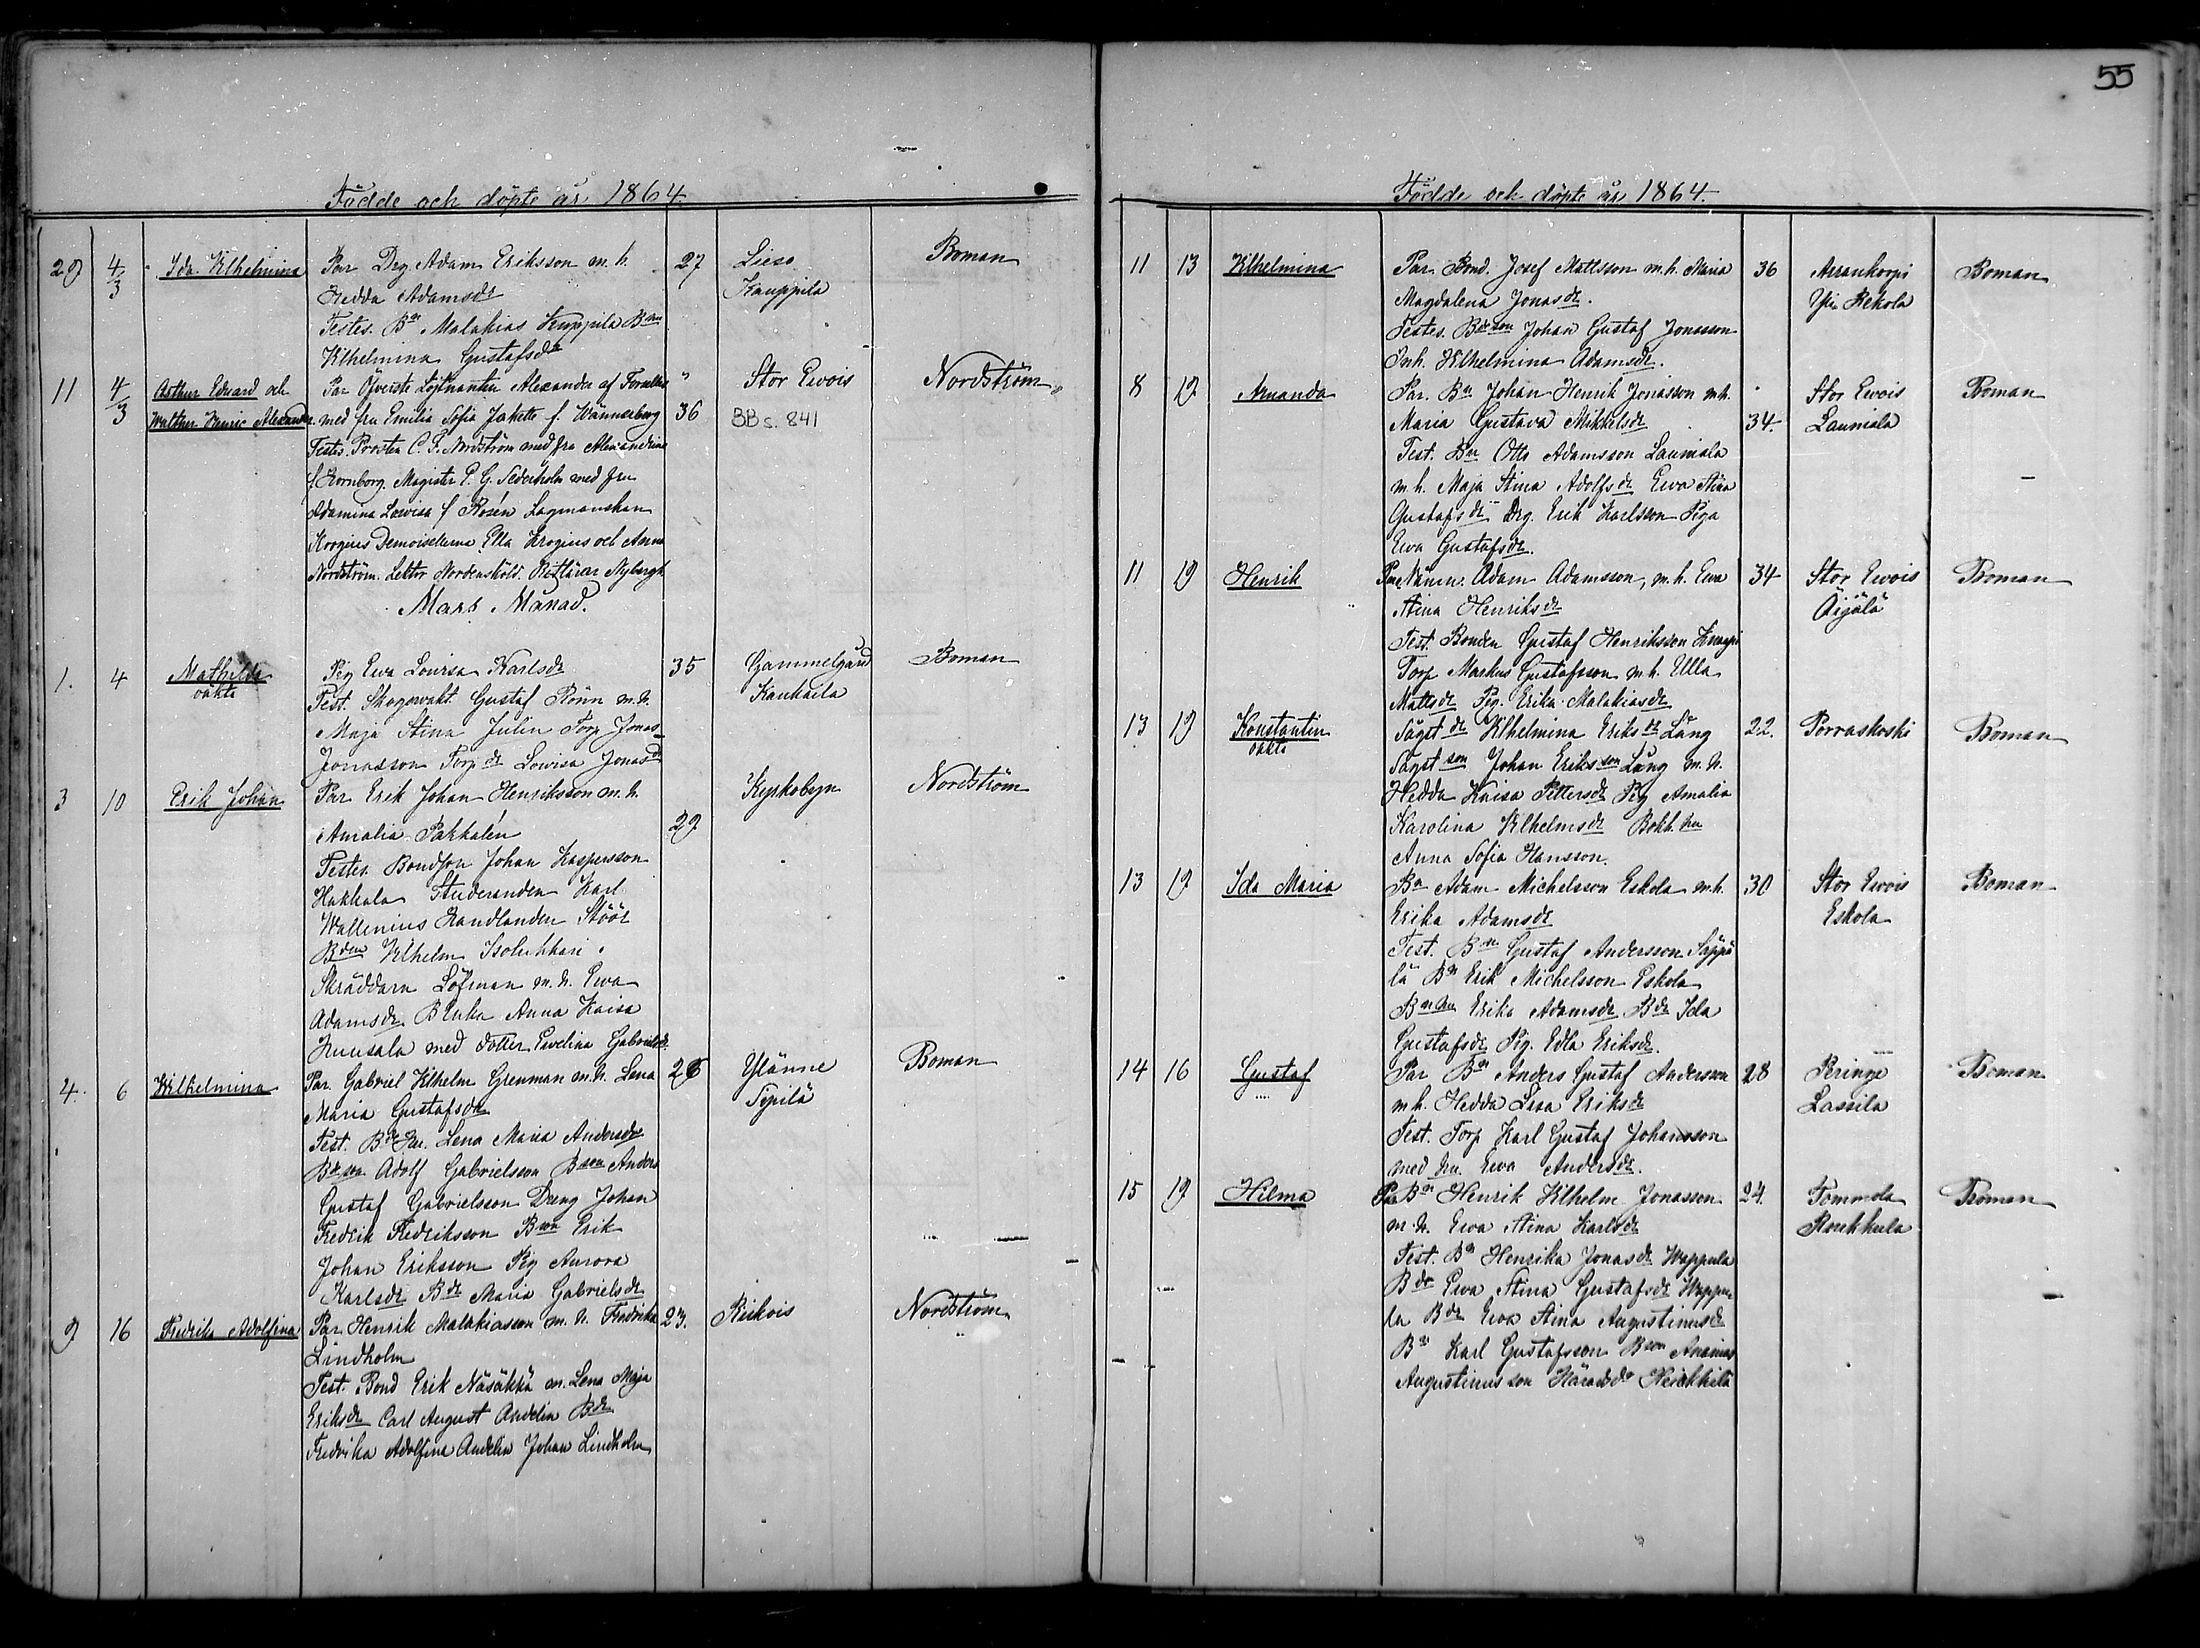 55
Födde och döpte år 1864.
29 4/3 Ida Vilhelmina Par Drg Adam Eriksson m. h. 27 Lieso Boman
Hedda Adamsdr Kauppila
Testes. Bn Malakias Kuppila Bson
Vilhelmina Gustafsdr
11 4/3 Arthur Eduard och Par Öfverste Löjtnanten Alexander af Forselles " Stor Evois Nordström
Walther Henric Alexander med fru Emilia Sofia Jakette f. 36 BB s. 841
Testes. Prosten C. F. Nordström med fru Alexandrina
f. Hornborg. Magister P. G. Sederholm med fru
Adamina Lovisa f Rosén Lagmanskan
Krogius Demoisellerna Ella Krogius och Anna
Nordström. Lektor Nordenskiöld. Nybergh
Mars Månad.
1. 4 Mathilda Pig Ewa Lovisa Karlsdr 35 Gammelgård Boman
oäkta Test. Skogswakt. Gustaf Rönn m. h. Kankaila
Maja Stina Julin Torp Jonas
Jonasson Torp dr Lowisa Jonasd
3 10 Erik Johan Par Erik Johan Henriksson m. h. Kyrkobyn Nordström
Amalia Pakkalén 29
Testes. Bondson Johan Kaspersson
Hakkala Studeranden Karl
Wallenius Handlanden Stöör
Bden Vilhelm Isolukkari
Skräddarn Löfman m. h. Ewa
Adamsdr B Enka Anna Kaisa
Kuusala med dotter Ewelina Gabrielsdr
4. 6 Wilhelmina Par. Gabriel Vilhelm Grenman m. h. Lena 26 Ylänne Boman
Maria Gustafsdr Sipilä
Test. Bde Hu. Lena Maria Andersdr
Bdeson Adolf Gabrielsson Bson Anders
Gustaf Gabrielsson Dreng Johan
Fredrik Fredriksson Bson Erik
Johan Eriksson Pig Aurora
Karlsdr Bdr Maria Gabrielsdr
9 16 Fredrika Adolfina Par. Henrik Malakiasson m. h. Fredrika 23. Riikois Nordström
Lindholm
Test. Bond Erik Näsäkkä m. Lena Maja
Eriksdr Carl August Andelin Bdr
Fredrika Adolfina Andelin Johan Lindholm
Födde och döpte år 1864.
11 13 Vilhelmina Par. Bond. Josef Mattsson m. h. Maria 36 Arrankorpi Boman
Magdalena Jonasdr. Yli Rekola
Testes. Bdeson Johan Gustaf Jonasson
Inh. Vilhelmina Adamsdr.
8 19 Amanda Par. Bn Johan Henrik Jonasson m. h. Stor Evois Boman
Maria Gustava Mikkelsdr 34. Launiala
Test. Bn Otto Adamsson Launiala
m. h. Maja Stina Adolfsdr Ewa Stina
Gustafsdr Drg. Erik Karlsson Piga
Ewa Gustafsdr.
11 19 Henrik Par Adam Adamsson, m. h. Ewa 34 Stor Evois Boman
Stina Henriksdr Äijälä
Test. Bonden Gustaf Henriksson
Torp Markus Gustafsson m. h. Ulla
Mattsdr Pig. Erika Malakiasdr
13 19 Konstantin Sågst dr Vilhelmina Eriksdr Lång 22. Porraskoski Boman
oäkta Sågst son Johan Eriksson Lång m. h.
Hedda Kaisa Pettersdr Pig Amalia
Karolina Vilhelmsdr Bokh. hu
Anna Sofia Hansson.
13 19 Ida Maria Bn Adam Michelsson Eskola m. h. 30 Stor Evois Boman
Erika Adamsdr Eskola
Test. Bn Gustaf Andersson Säppä
lä Bn Erik Michelsson Eskola
Bn hu Erika Adamsdr Bdr Ida
Gustafsdr Pig. Edla Eriksdr.
14 16 Gustaf Par Bn Anders Gustaf Andersson 28 Boman
m. h. Hedda Lisa Eriksdr Lassila
Test. Torp Karl Gustaf Johansson
med hu. Ewa Andersdr.
15 19 Hilma Par Bn Henrik Vilhelm Jonasson 24. Tommola Boman
m. h. Ewa Stina Karlsdr Roukkula
Test. Bn Henrika Jonasdr Wappula
Bdr Ewa Stina Gustafsdr Wappu
la Bdr Ewa Stina Augustinusdr
Bn Karl Gustafsson Bson Ananias
Augustinusson Heikkilä